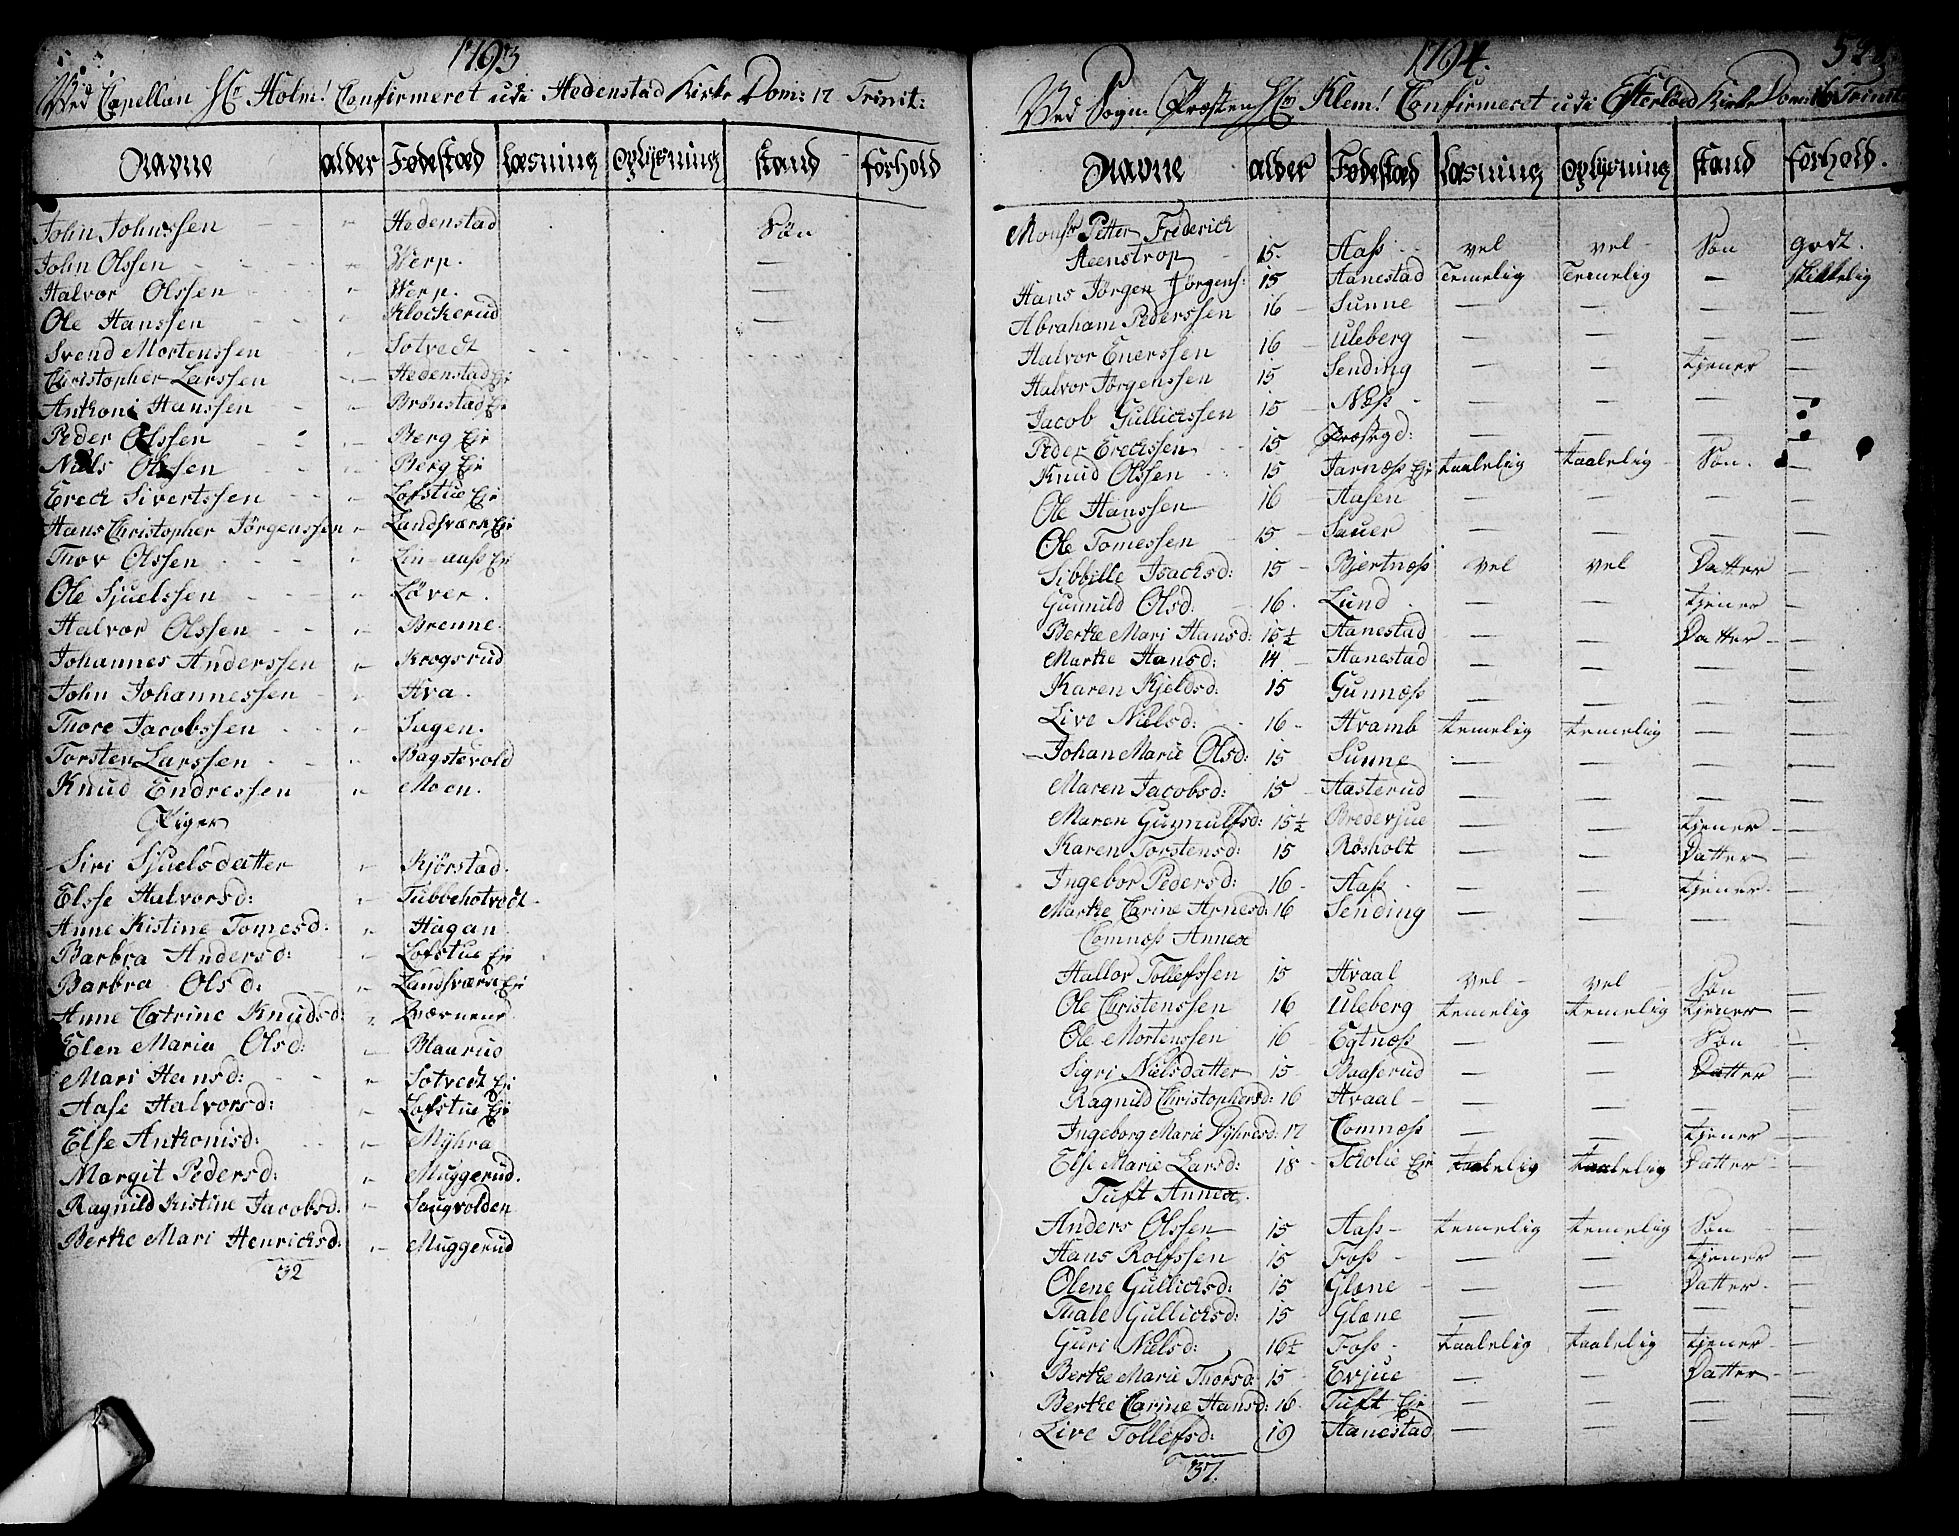 1793
Ved Capellan Hr Holm! Confirmeret udi Hedenstad Kirke Dom: 17 Trinit:
Navne alder Fødestæd Læsning Oplysning stand forhold
John Johnssen " Hedenstad Søn
John Olssen " Werp. —
Halvor Olssen " Werp.
Ole Hanssen " Klockerud —
Svend Mortenssen " Sotvedt
Christopher Larssen " Hedenstad Eje
Anthoni Hanssen " Brønstad Eje
Peder Olssen " Berg Eje
Niels Olssen " Berg Eje
Erech Sivertssen " Lofstue Eje
Hans Christopher Jørgenssen " Landsværk Eje
Thov Olssen " Lin-aass Eje
Ole Sjuelssen " Løver.
Halvor Olssen " Brenne.
Johannes Anderssen " Krogsrud
John Johannessen " Hva.
Thore Jacobssen " Sugen.
Torsten Larssen " Bagstevold
Knud Endressen " Moen.
Piger
Siri Sjuelsdatter " Kjørstad.
Elsse Halvorsd: " Tubbehotvedt
Anne Kistine Tomesd: " Hagan
Barbra Andersd: " Lofstue Eje
Barbra Olsd: " Landsværk Eje
Anne Catrine Knudsd: " Qværnene
Elen Maria Olsd: " Blaarud
Mari Hansd: " Sotvedt Eje
Aase Halvorsd: " Lofstue Eje
Else Anthonisd: " Myhra
Margit Pedersd: " Muggerud.
Ragnild Kistine Jacobsd: " Saugvolden
Berthe Mari Henrichsd: " Muggerud
32
1794.
Ved Sogne Præsten Hr Klem! Confirmeret udi Efterløed Kirke Dom: 16 Trinit
Navne alder Fødestæd Læsning Oplysning stand forhold.
Monsr Petter Frederich
Steenstrop 15. Aass vel vel Søn godt.
Hans Jørgen Jørgens: 15 Hanestad Temelig Temelig — skikkelig
Abraham Pederssen 16 Sunne — — — —
Halvor Enerssen 16 Uleberg — — — —
Halvor Jørgenssen 15 Sending — — tjener —
Jacob Gullichssen 15 Næss — — — —
Peder Erechssen 15 Præstegd: — — — —
Knud Olssen 15 Jarnæss Eje taalelig taalelig Søn. —
Ole Hanssen 16 Aasen — — — —
Ole Tomessen 15 Sauer — — — —
Sibbille Isachsd: 15 Bjertnæss vel vel Datter —
Gunnild Olsd. 16. Lund — — tjener —
Berthe Mari Hansd: 16½ Hanestad — — Datter —
Marthe Hansd: 14 Hanestad — — — —
Karen Kjeldsd: 15 Gunnæss — — — —
Live Nielsd: 16 Hvamb temelig temelig — —
Johan Marie Olsd: 15 Sunne — — — —
Maren Jacobsd: 15 Hasterud — — — —
Maren Gunnulfsd: 15½ Bredevjue — — tjener —
Karen Torstensd: 15 Røsholt — — Datter —
Ingebor Pedersd: 16 Aass — — tjener —
Marthe Carine Arnesd: 16 Sending — — — —
Comnæss Annex
Hallor Tollefssen 15 Hvaal vel vel Søn —
Ole Christenssen 16 Uleberg temelig temelig tjener —
Ole Mortenssen 16 Egtnæss — — Søn —
Sigri Nielsdatter 15 Baaserud — — Datter —
Ragnild Christophersd: 16 Hvaal — — — —
Ingeborg Marie Dyhresd: 17 Comnæss — — tjener —
Else Marie Larsd: 18 Scholie Eje taalelig taalelig Datter —
Tuft Annex.
Anders Olssen 15 Aass temelig temelig Søn —
Hans Rolfssen 15 Foss — — tjener —
Olene Gullichsd: 15 Glæne — — Datter —
Thale Gullichsd: 15 Glæne — — — —
Guri Nielsd: 16½ Foss taalelig taalelig tjener —
Berthe Marie Thorsd 15 Evjue — — Datter —
Berthe Carine Hansd: 16 Tuft Eje — — — —
Live Tollefsd: 19 Hanestad — — — —
37.